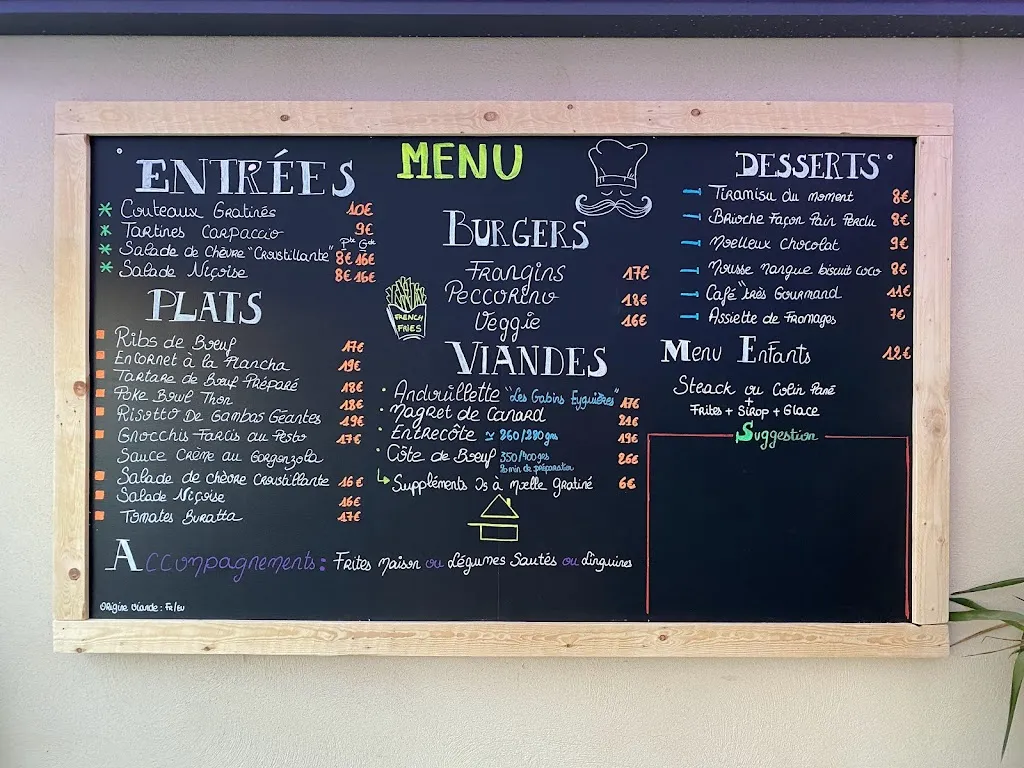 MENU
ENTRÉES
Couteaux Gratinés 10€
Tartines Carpaccio 9€
Pte Gde
Salade de chèvre "Croustillante" 8€ 16€
Salade Niçoise 8€ 16€
PLATS
Ribs de Bœuf 17€
Encornet à la Plancha 19€
Tartare de Bœuf Préparé 18€
Poke Bowl Thon 18€
Risotto De Gambas Géantes 19€
Gnocchis Farcis au Pesto 17€
Sauce Crème au Gorgonzola
Salade de chèvre Croustillante 16€
Salade Niçoise 16€
Tomates Buratta 17€
BURGERS
Frangins 17€
Peccorino 18€
Veggie 16€
FRENCH
FRIES
VIANDES
Andouillette "Les Gabins Eyguières" 17€
Magret de Canard 21€
Entrecôte ≃ 260/280 grs 19€
Côte de Bœuf 350/400 grs 26€
20 min de préparation
Suppléments Os à Moelle Gratiné 6€
DESSERTS
Tiramisu du moment 8€
Brioche Façon Pain Perdu 8€
Moelleux Chocolat 9€
Mousse Mangue biscuit coco 8€
Café "très Gourmand 11€
Assiette de Fromages 7€
Menu Enfants 12€
Steack ou Colin Pané
+
Frites + Sirop + Glace
Suggestion
Accompagnements : Frites Maison ou Légumes Sautés ou Linguines
Origine Viande : Fr/Eu